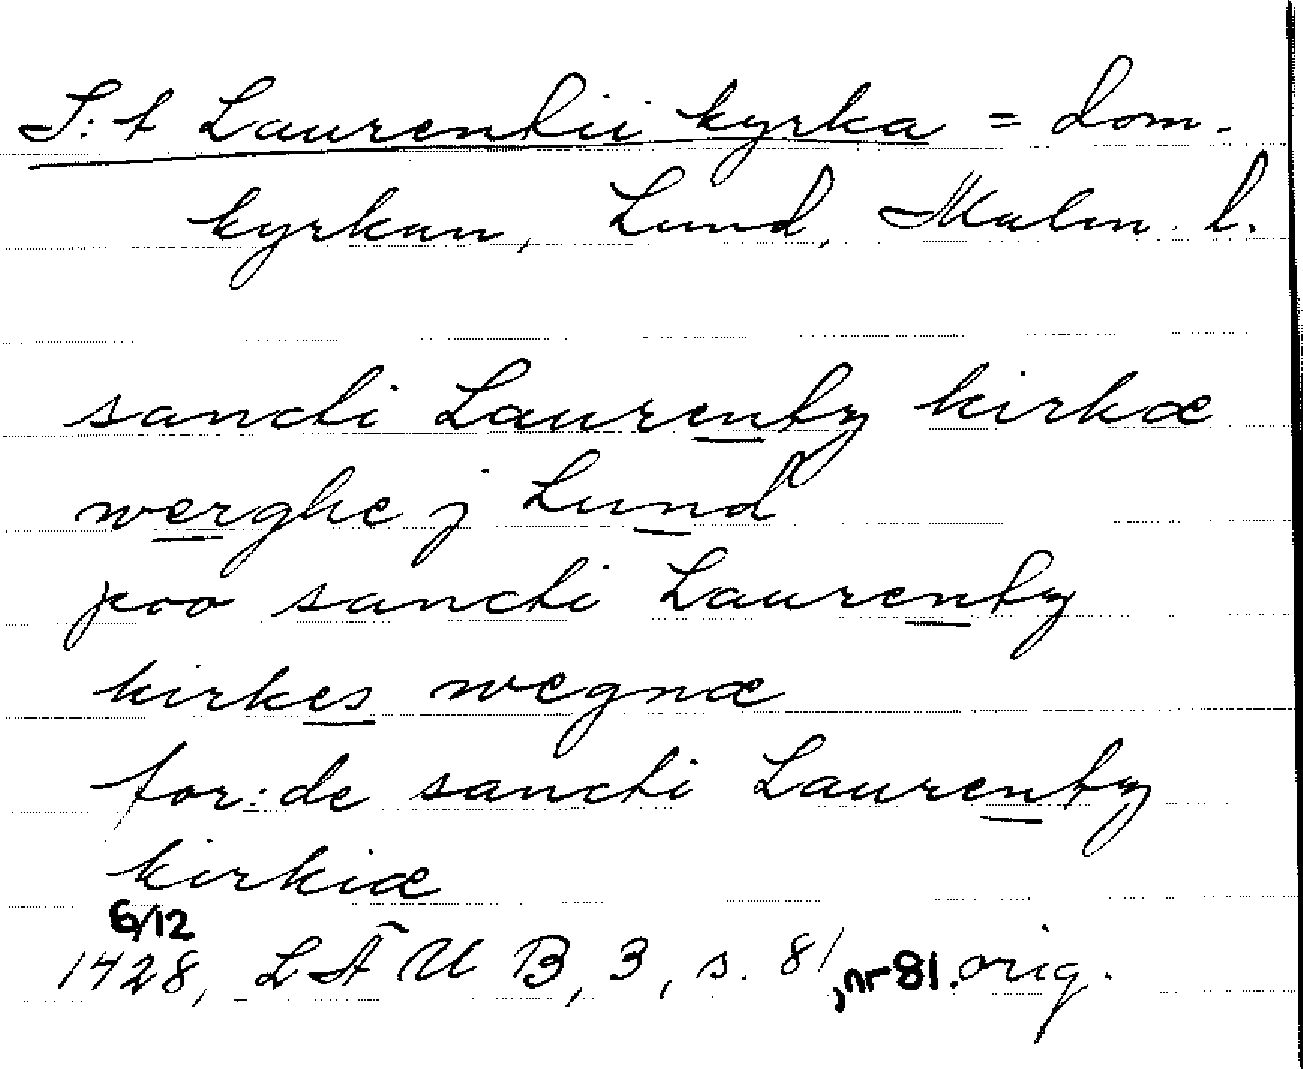 S:t Laurentii kyrka = dom-
kyrkan, Lund, Malm. l.
sancti Laurenty kirkæ
werghe j Lund
poo sancti Laurenty
kirkes wegnæ
for:de sancti Laurenty
kirkiæ
6/12
1428, LÄUB, 3, s. 81, nr 81. orig.